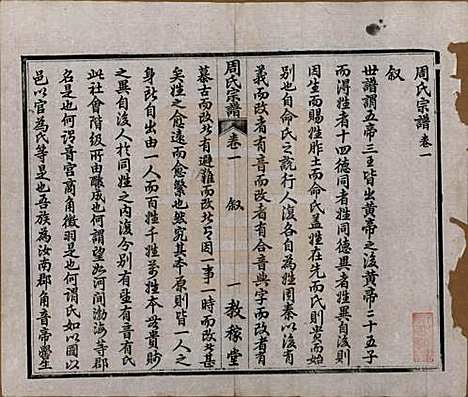 周氏宗譜卷一
叙
世譜謂五帝三王皆出黄帝之後黄帝二十五子
而得姓者十四德同者姓同德異者姓異自後則
因生而賜姓胙土而命氏盖姓在先而氏則貴而始
别也自命氏之說行人後各自為姓周秦以後有
義而改者有音而改者有合音與字而改者有
周氏宗譜 卷一 叙 一 敦稼堂
慕古而改者有避難而改者因一事一時而改者甚
矣姓之愈遠而愈繁也然究其本原則皆一人之
身所自出由一人而百姓千姓萬姓本無貴賤
之異自後人於同姓之内復分别有望有音有氏
此社會階級所由釀成也何謂望如河間渤海等郡
是也何謂音宫商角徵羽是也何謂氏如以國以
邑以官為氏等是也吾族為汝南郡角音帝嚳生